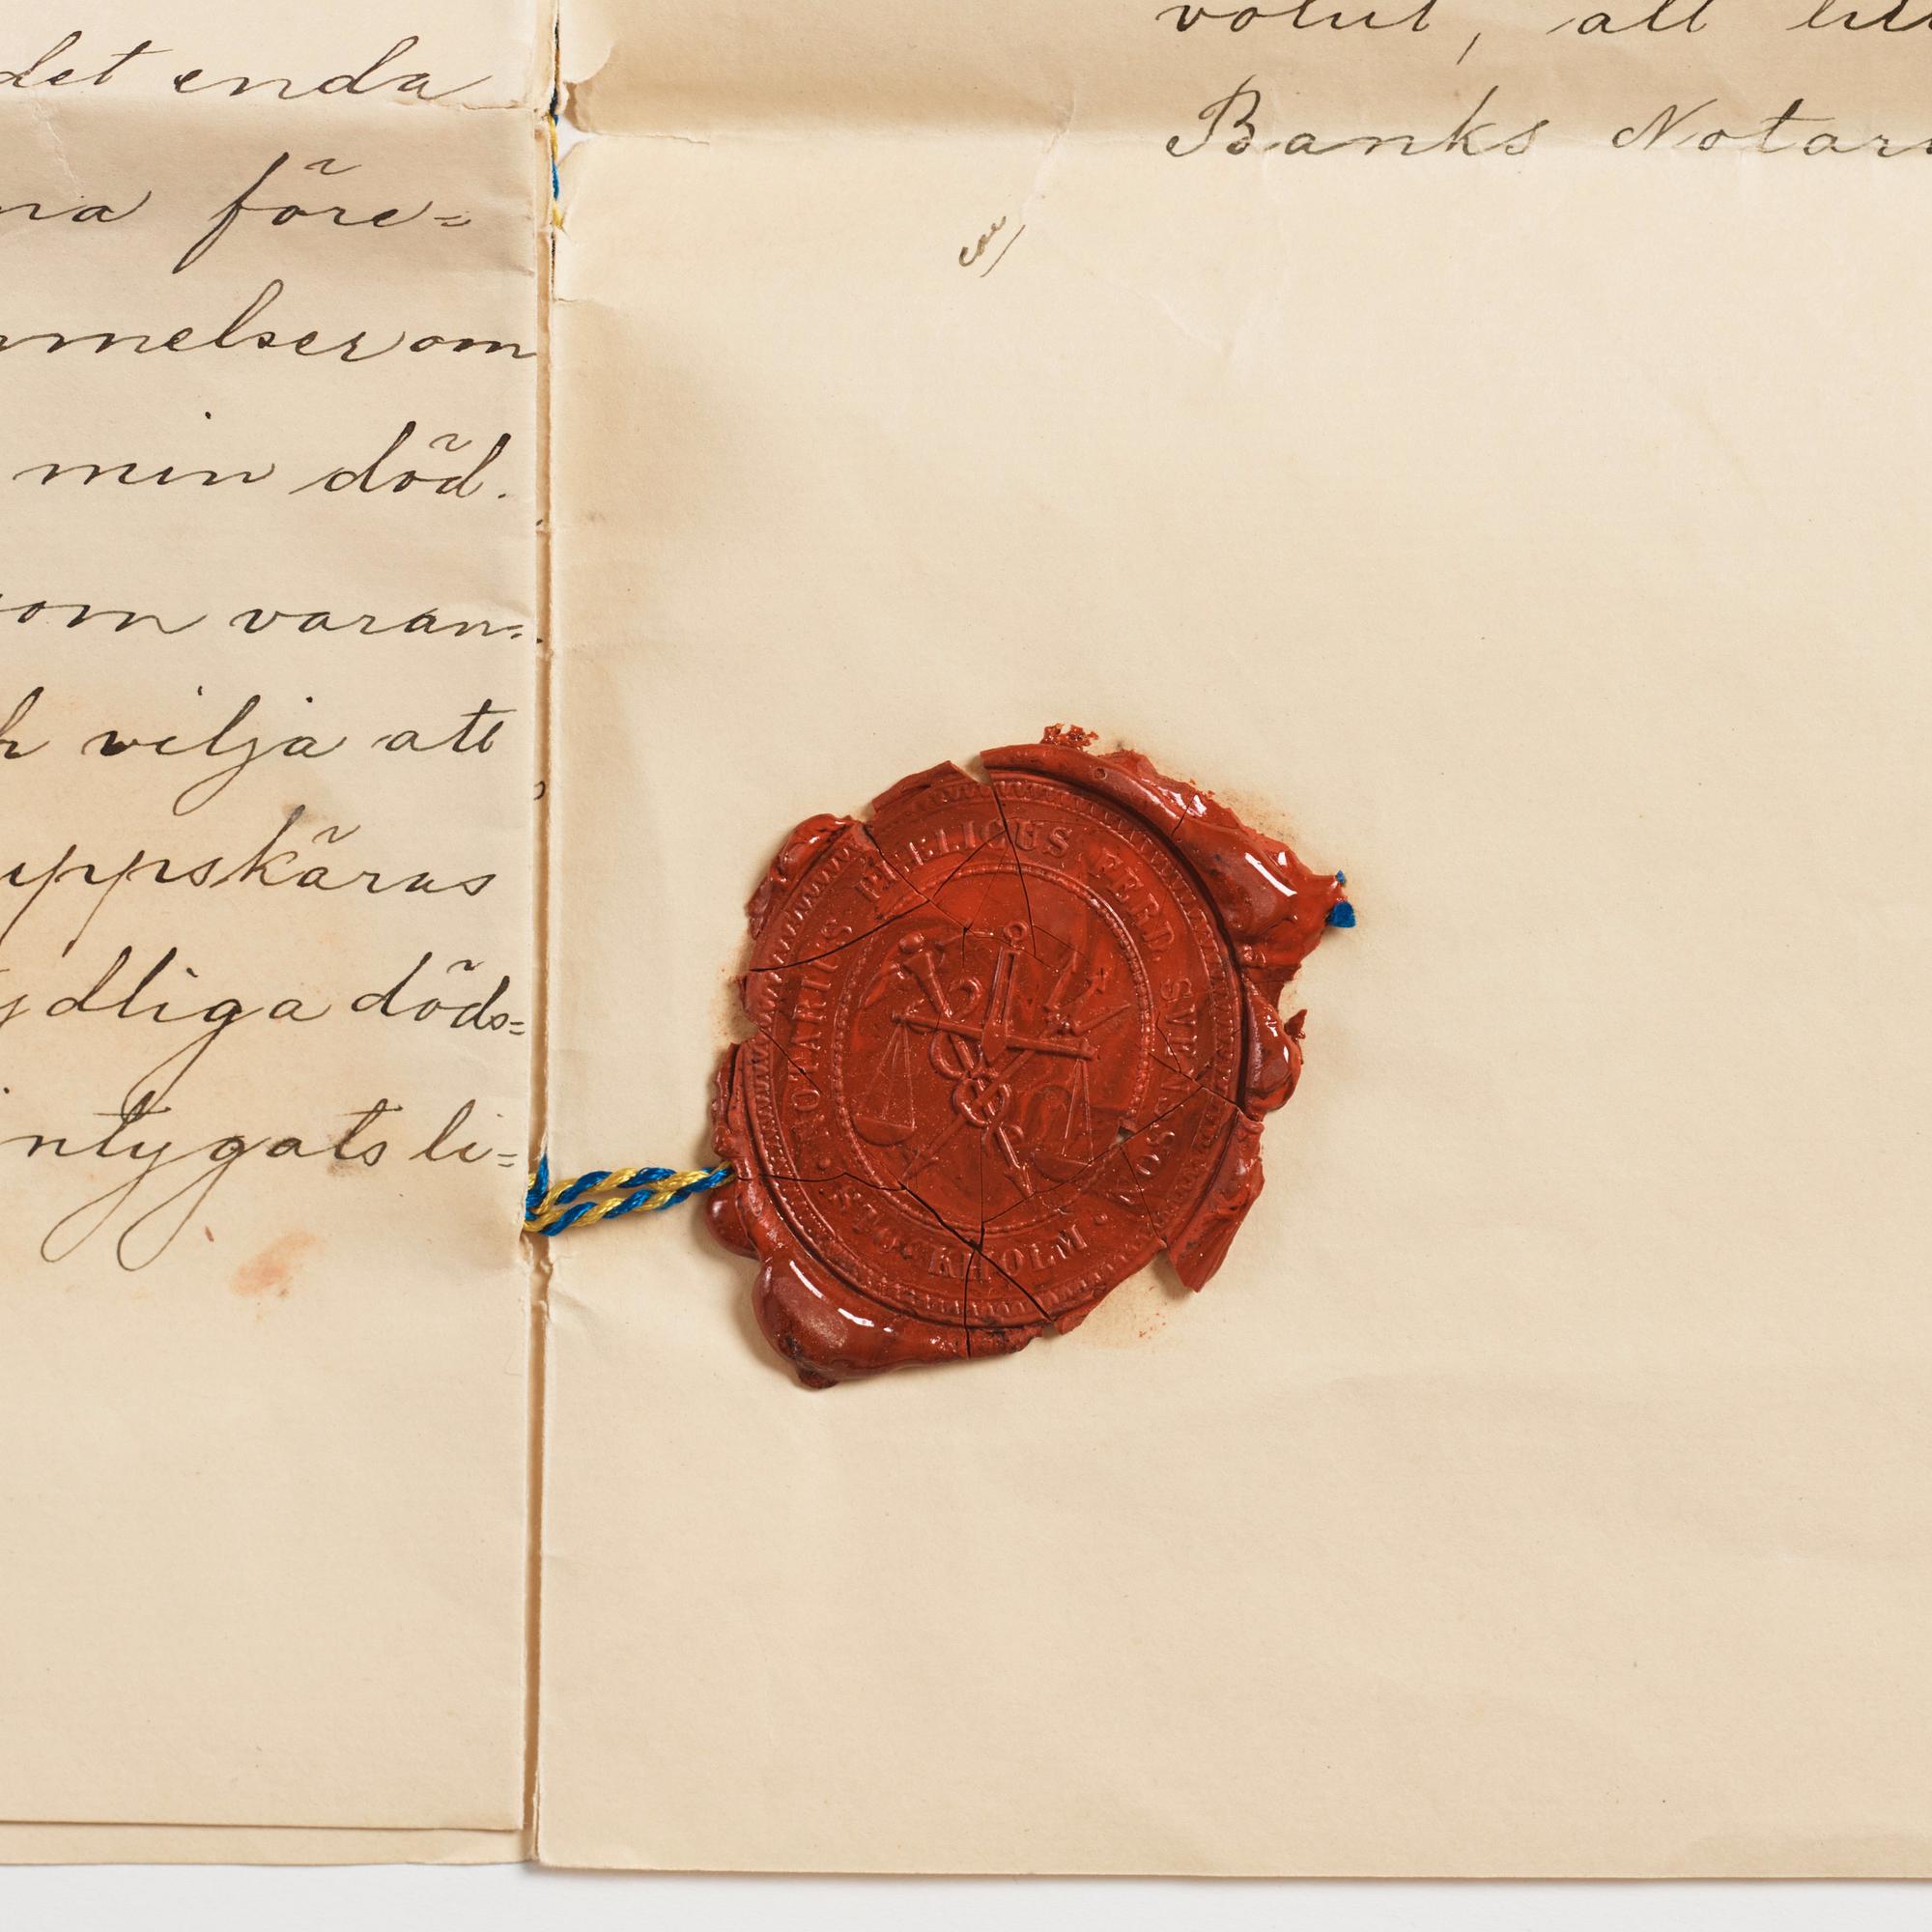 det enda
före=
melser om
min död.
som varan=
vilja att
uppskäras
tydliga döds=
intygats li=
att
Banks Notari
NOTARIUS PUBLICUS FERD. SVENSSON
STOCKHOLM